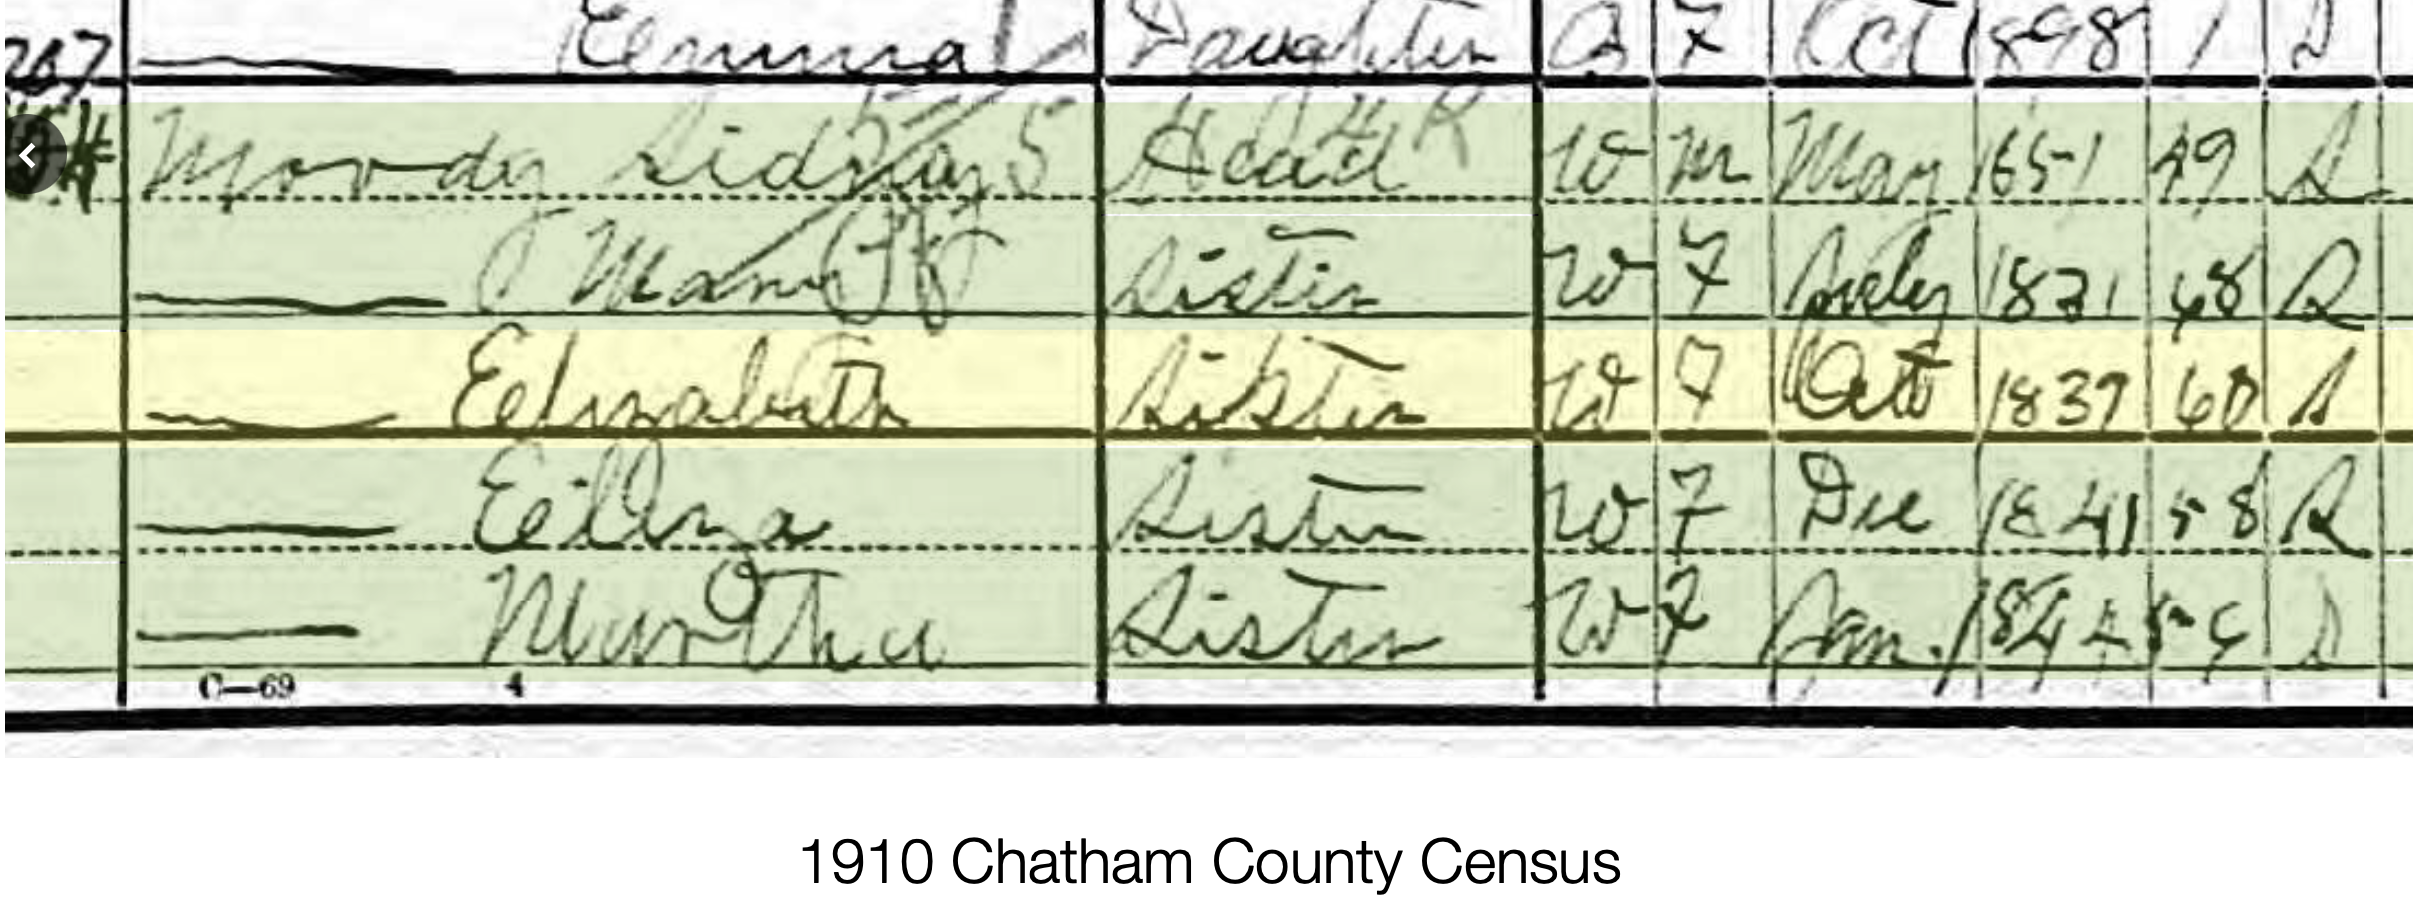 207 Emma Daughter B F Oct 1898 1 S
Moody Sidney S Head W M May 1851 49 S
Mary Sister W F July 1831 68 S
Elizabeth Sister W F Oct 1839 60 S
Eliza Sister W F Dec 1841 58 S
Martha Sister W F Jan. 1844 56 S
C—69 4
1910 Chatham County Census